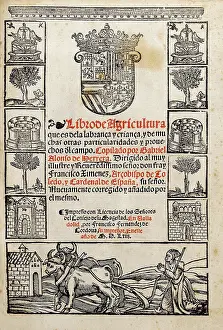 Libro de Agricultura
que es de la labrança y criança, y de mu
chas otras particularidades y proue
chos del campo. Copilado por Gabriel
Alonso de Herrera. Dirigido al muy
illustre y Reuerẽdissimo señor don fray
Francisco Ximenez, Arçobispo de To
ledo, y Cardenal de España, su señor.
Nueuamente corregido y añadido por
el mesmo.
Impresso con Licencia de los Señores
del Consejo de su Magestad. En Valla
dolid, por Francisco Fernandez de
Cordoua su impressor. En este
año de M. D. Liij.